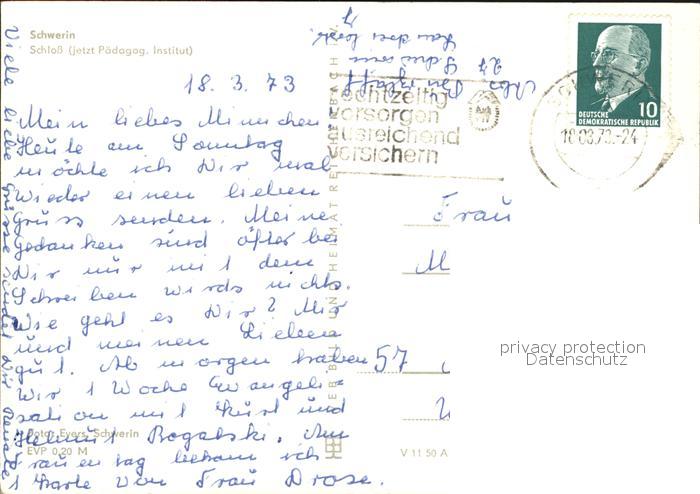 Schwerin
Schloß (jetzt Pädagog. Institut)
18. 3. 73
Mein liebes Minnchen
Heute am Sonntag
möchte ich Dir mal
Wieder einen lieben
Gruss senden. Meine
Gedanken sind öfter bei
Dir nur mit dem
Schreiben wirds nichts.
Wie geht es Dir? Mir
und meinen Lieben
gut. Ab morgen haben
Wir 1 Woche Evangeli-
sation mit Kurt und
Helmut Bogatski. Am
Frauentag bekam ich
1 Karte von Frau Drose.
Viele liebe Grüsse sendet Dir Renate
Foto: Evers, Schwerin
EVP 0,20 M
V 11 50 A
rechtzeitig
vorsorgen
ausreichend
versichern
DEUTSCHE
DEMOKRATISCHE REPUBLIK
10
18.03.73.-24
Frau
M
57
privacy protection
Datenschutz